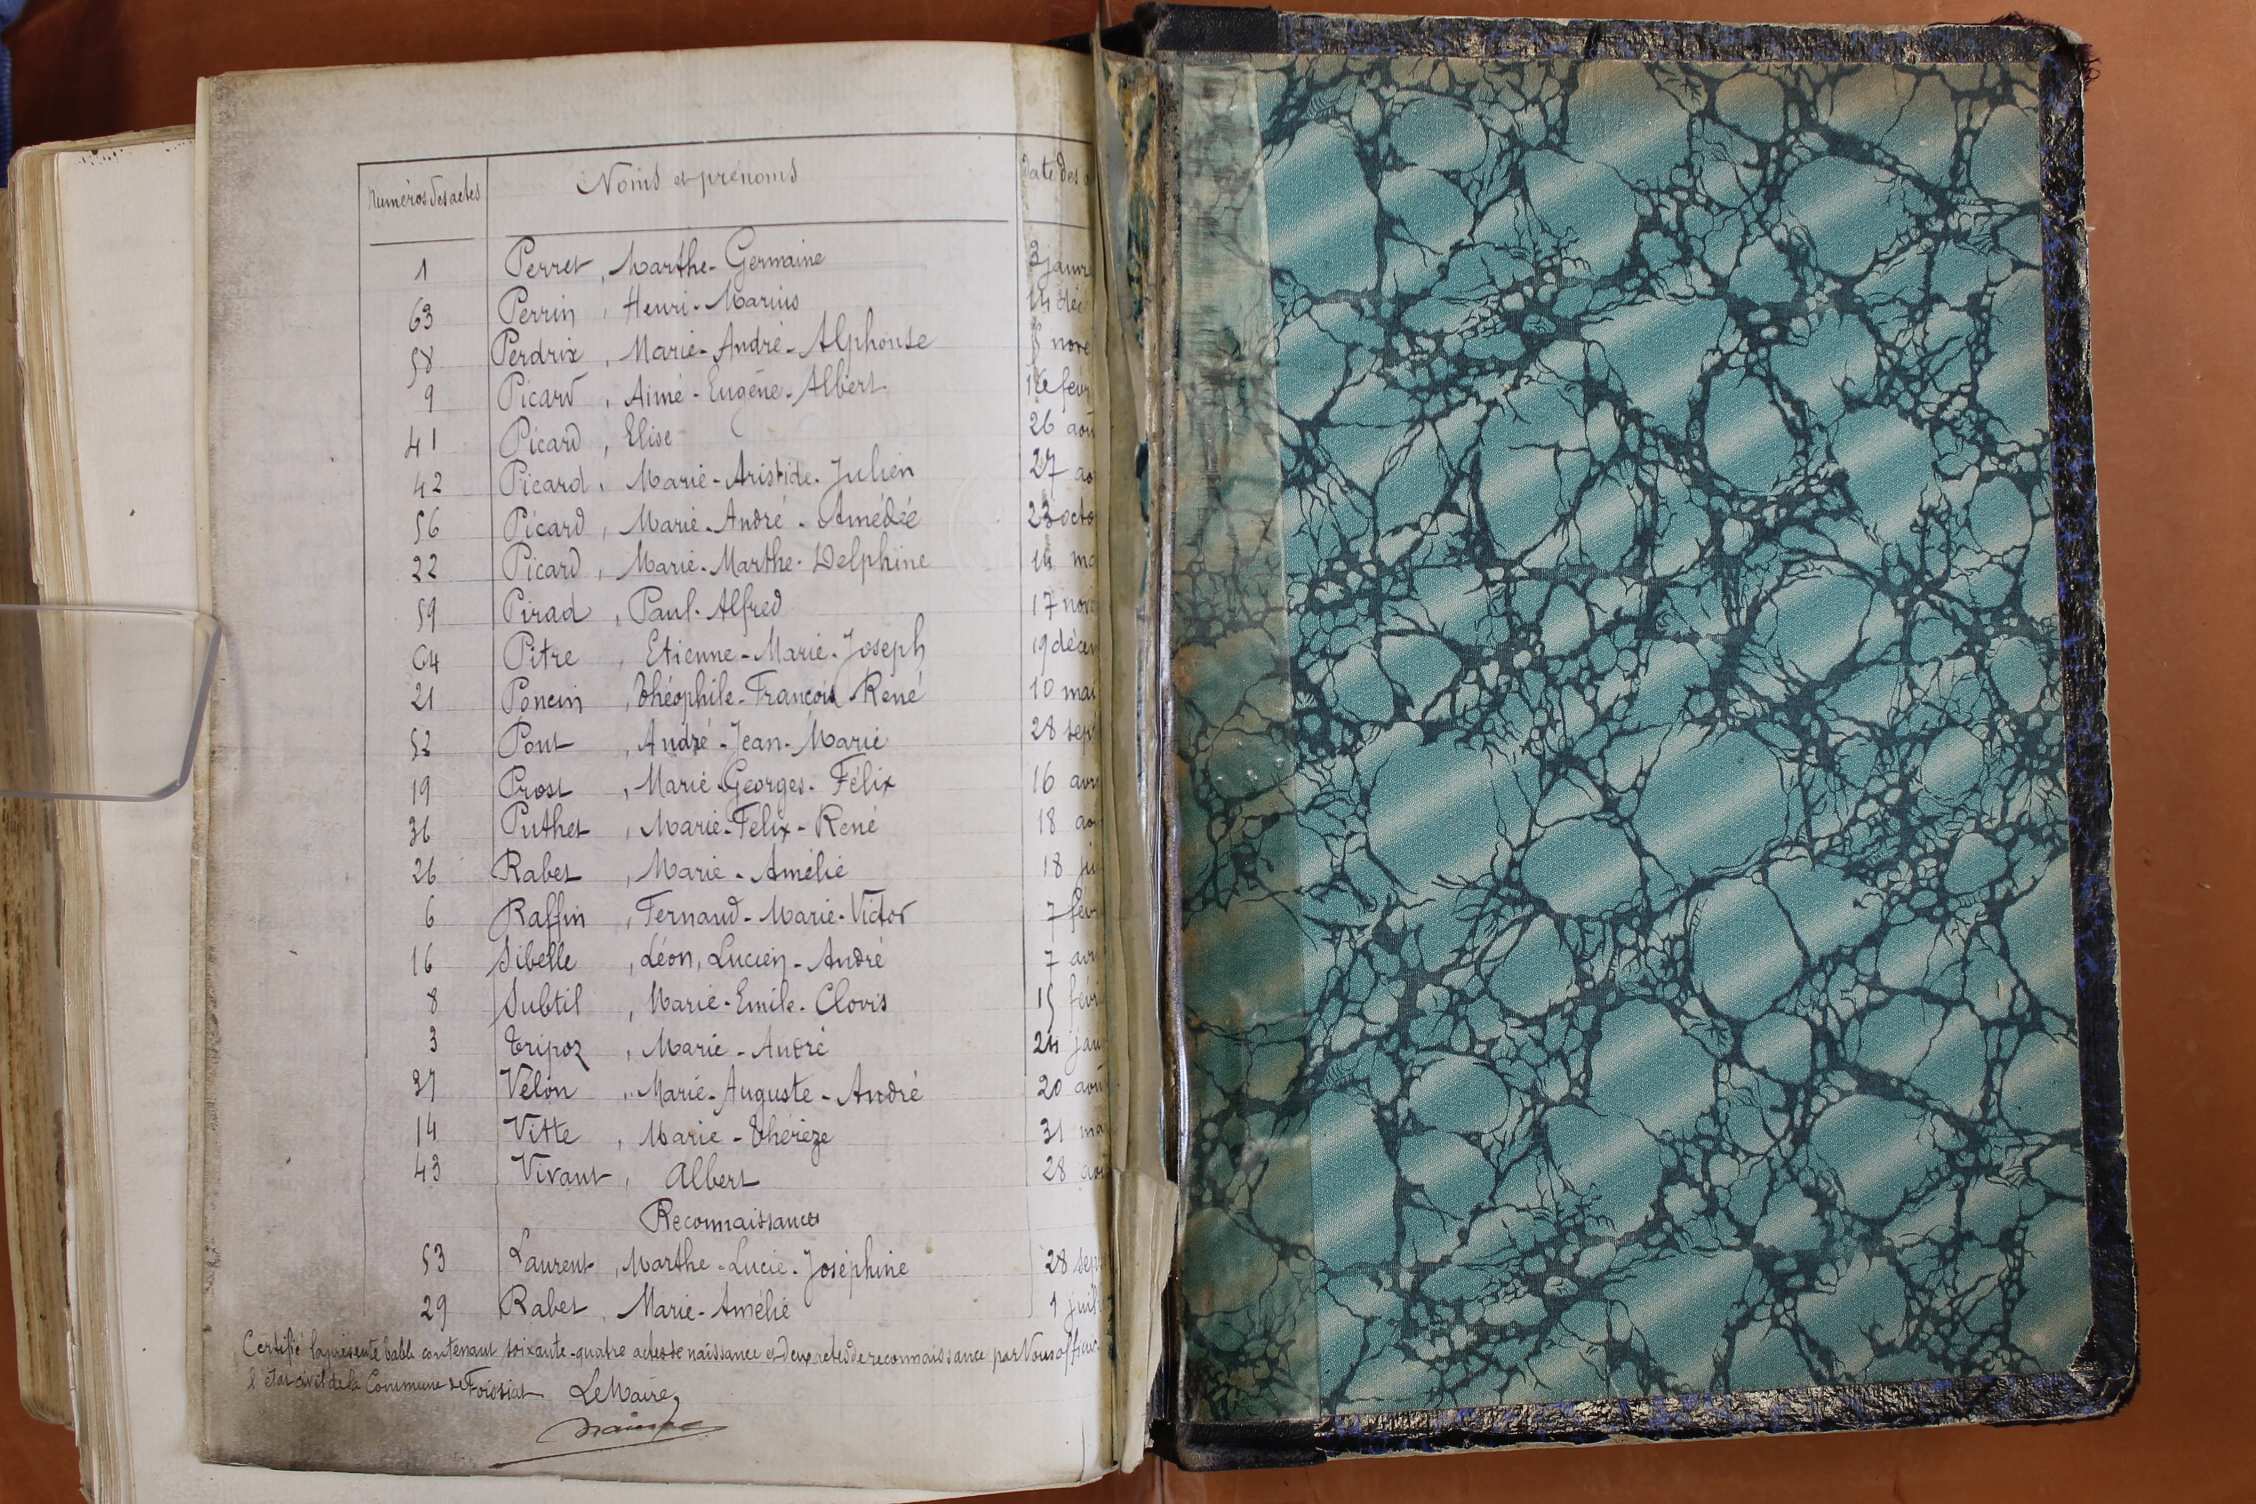 Numéros des actes Noms et prénoms Date des
1 Perret, Marthe-Germaine 3 janv
63 Perrin, Henri-Marius 14 déc
58 Perdrix, Marie-André-Alphonse nove
9 Picard, Aimé-Eugène-Albert fév
41 Picard, Elise 26 aoû
42 Picard, Marie-Aristide-Julien 27 ao
56 Picard, Marie-André-Amédée 23 octo
22 Picard, Marie-Marthe-Delphine 14 ma
59 Pirad, Paul-Alfred 17 nov
64 Pitre, Etienne-Marie-Joseph 19 décem
21 Poncin, Théophile-François René 10 mai
52 Pont, André-Jean-Marie 28 sept
19 Prost, Marie-Georges-Félix 16 avr
36 Puthet, Marie-Félix-René 18 ao
26 Rabet, Marie-Amélie 18 ju
6 Raffin, Fernand-Marie-Victor 7 fév
16 Sibelle, Léon, Lucien-André 7 avr
8 Subtil, Marie-Emile-Clovis 15 févr
3 Tripoz, Marie-André 24 jan
37 Vélon, Marie-Auguste-André 20 aoû
14 Vitte, Marie-Thérèze 31 ma
43 Vivant, Albert 28 ao
Reconnaissances
53 Laurent, Marthe-Lucie-Joséphine 28 sep
29 Rabet, Marie-Amélie 1 juil
Certifié la présente table contenant soixante-quatre actes de naissance et deux actes de reconnaissance par Nous offici
l'état civil de la Commune de Foissiat Le Maire,